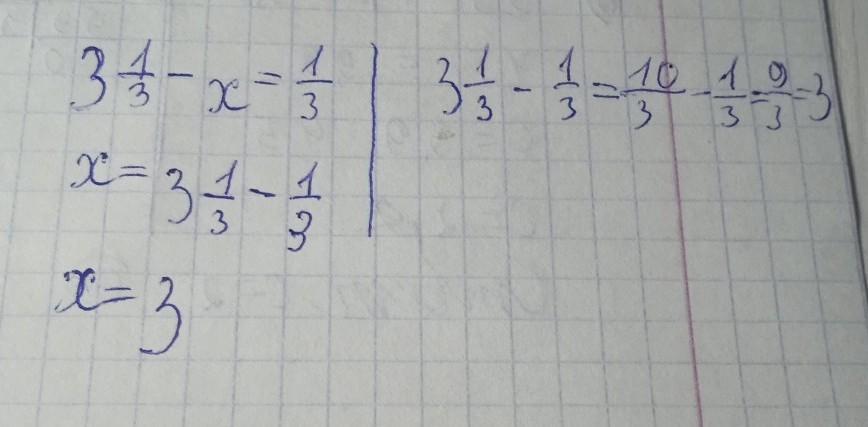 3 1/3 - x = 1/3
x = 3 1/3 - 1/3
x = 3
3 1/3 - 1/3 = 10/3 - 1/3 = 9/3 = 3